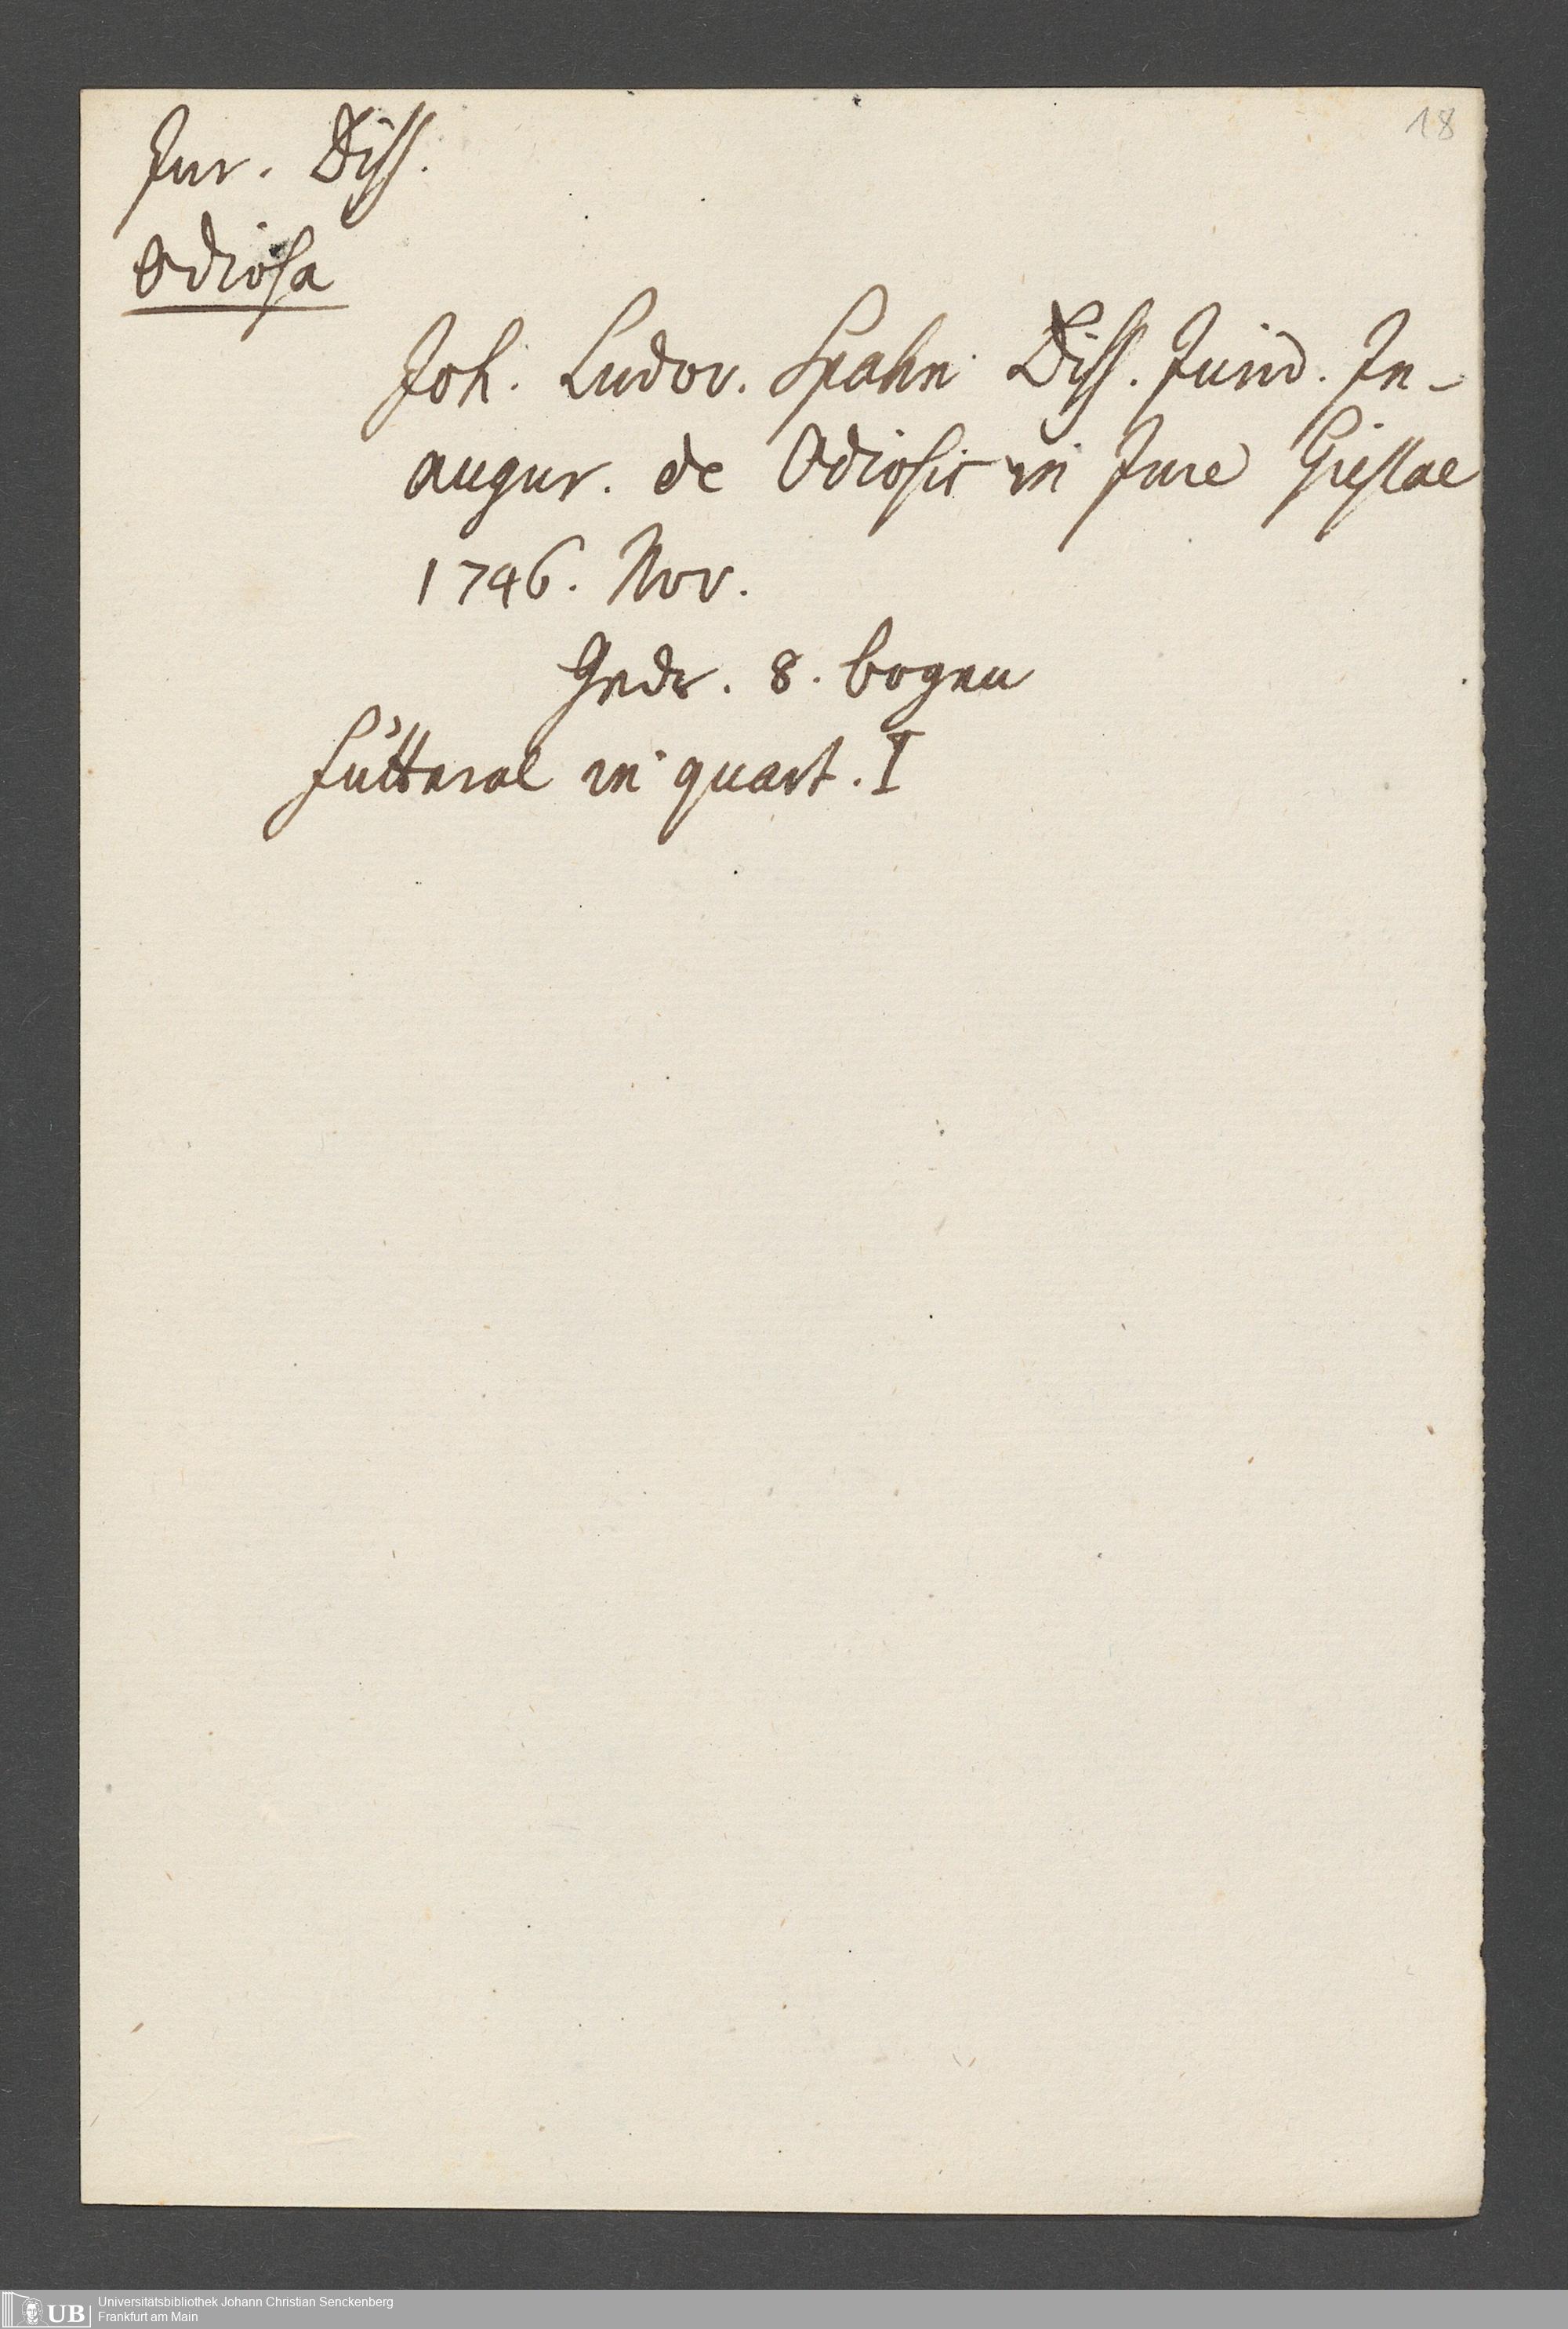 18
Jur. Diss.
Odiosa
Joh. Ludov. Spahn Diss. Jurid. In-
augur. de Odiosis in Jure Giessae
1746. Nov.
Gedr. 8. bogen
Futteral in quart. I
UB
Universitätsbibliothek Johann Christian Senckenberg
Frankfurt am Main